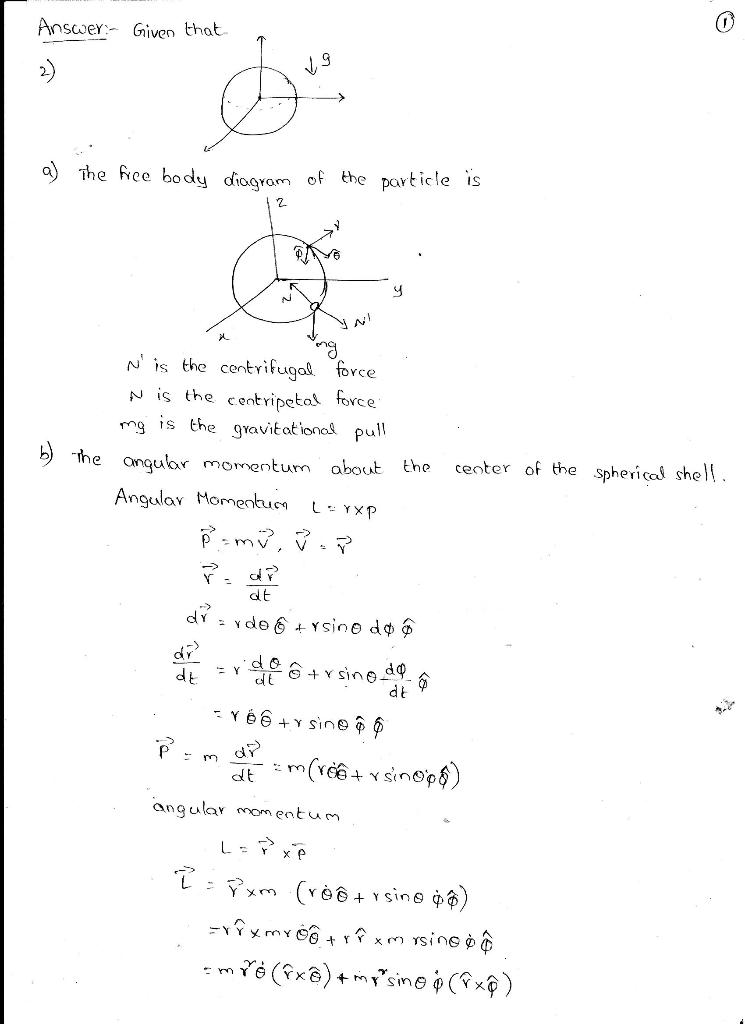 Answer:- Given that
①
2)
g
a) The free body diagram of the particle is
z
r̂
φ̂ θ̂
y
N
N'
x
mg
N' is the centrifugal force
N is the centripetal force
mg is the gravitational pull
b) The angular momentum about the center of the spherical shell.
Angular Momentum L = r×p
p⃗ = mv⃗, v⃗ = r⃗
r⃗ = dr⃗/dt
dr⃗ = rdθ θ̂ + rsinθ dφ φ̂
dr⃗/dt = r dθ/dt θ̂ + r sinθ dφ/dt φ̂
= r θ̇ θ̂ + r sinθ φ̂ φ̂
p⃗ = m dr⃗/dt = m(rθ̇θ̂ + r sinθφ̇φ̂)
angular momentum
L = r⃗ × p⃗
L⃗ = r⃗×m (rθ̇θ̂ + r sinθ φ̇φ̂)
= r r̂ × mrθ̇θ̂ + r r̂ × m rsinθ φ̇ φ̂
= m r² θ̇ (r̂×θ̂) + m r² sinθ φ̇ (r̂×φ̂)